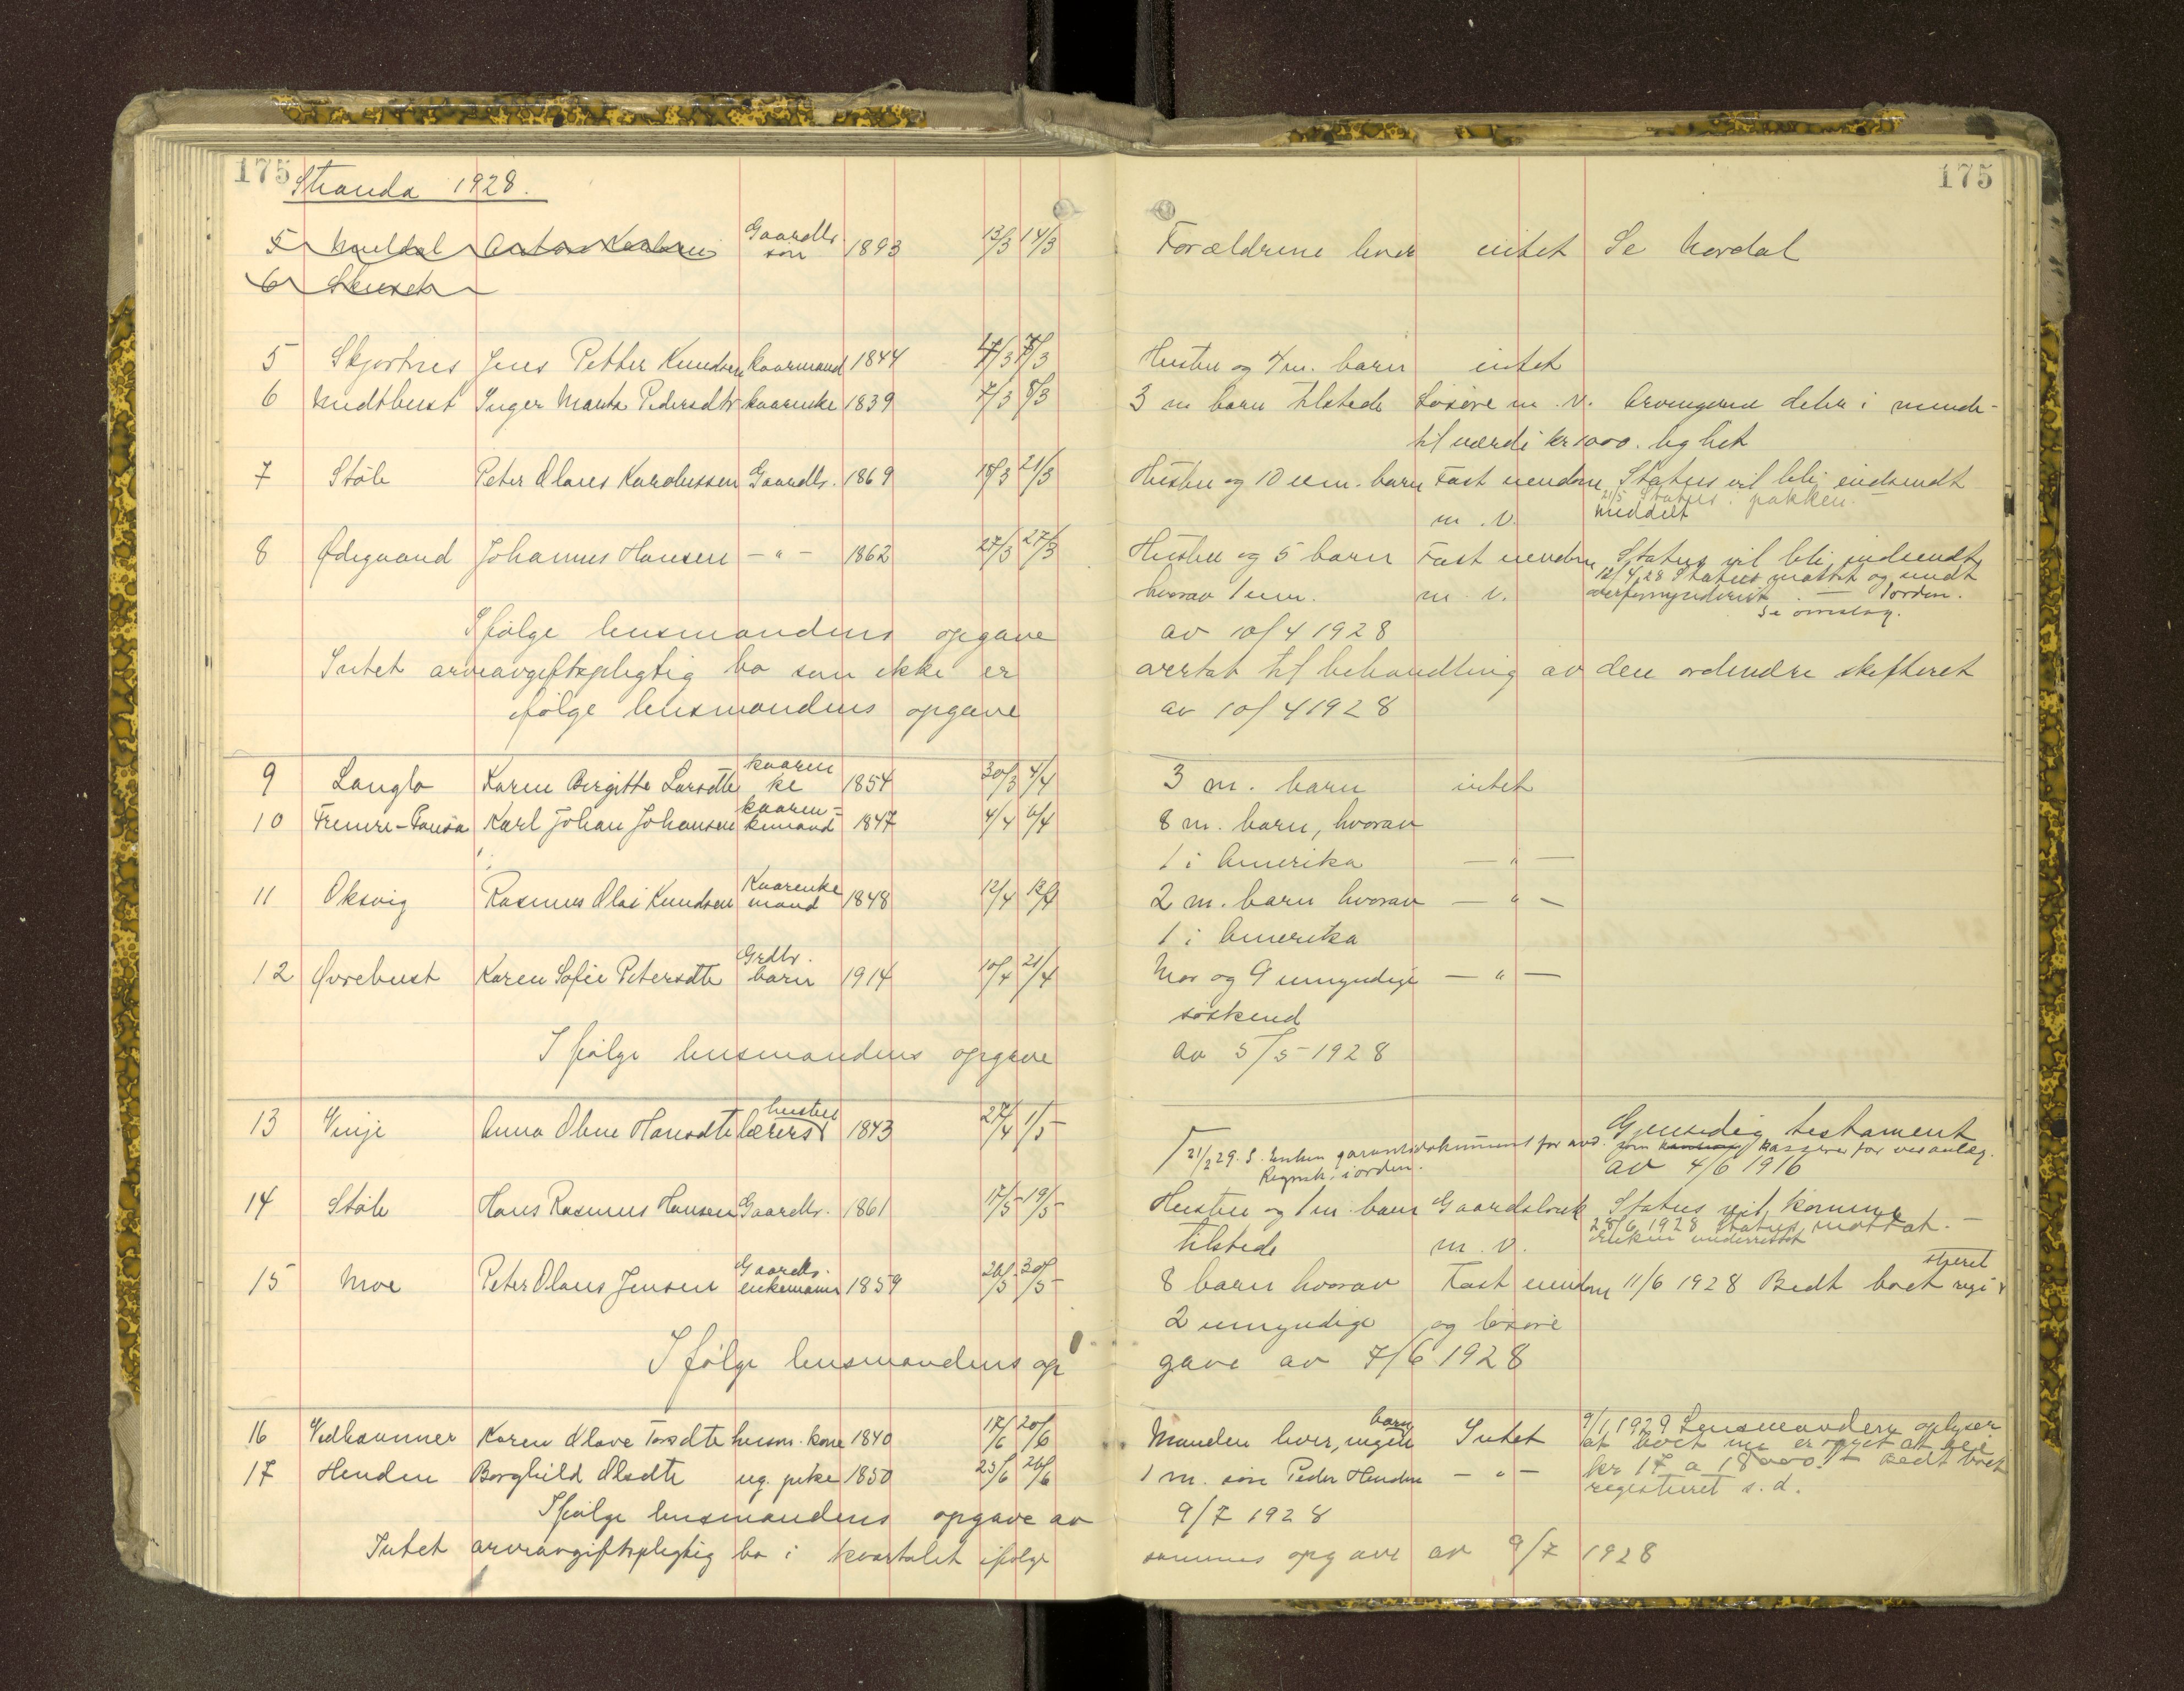 175
Stranda 1928.
5 Muldal Anton Gaardbr. søn 1893 13/3 14/3 Forældrene lever intet Se Nordal
6
5 Skjortnes Jens Petter Knudsen kaarmand 1844 4/3 7/3 Hustru og 4 m. barn intet
6 Midtbust Inger Marta Pedersdtr kaarenke 1839 7/3 8/3 3 m barn tilstede Løsøre m. v. Arvingerne deler i minde-
til værdi kr 1000. lighet
7 Støle Peter Olaus Karolussen Gaardbr. 1869 18/3 21/3 Hustru og 10 um. barn Fast eiendom Status vil bli indsendt
m. v. meddelt 21/5 Status i pakken.
8 Ødegaard Johannes Hansen — " — 1862 27/3 27/3 Hustru og 5 barn Fast eiendom Status vil bli indsendt
hvorav 1 um. m. v. 12/4 28 Status mottat og sendt
overformynderiet. — Iorden.
Se omslag.
Ifølge lensmandens opgave av 10/4 1928
Intet arveavgiftspligtig bo som ikke er overtat til behandling av den ordinære skifteret
ifølge lensmandens opgave av 10/4 1928
9 Langlo Karen Birgitte Larsdtr kaarenke 1854 30/3 4/4 3 m. barn intet
10 Fremre-Fausa Karl Johan Johansen kaaren-kemand 1847 4/4 6/4 8 m. barn, hvorav
1 i Amerika — " —
11 Oksvig Rasmus Olai Knudsen Kaarenkemand 1848 12/4 13/4 2 m. barn hvorav — " —
1 i Amerika
12 Øvrebust Karen Sofie Petersdtr Grdbr. barn 1914 10/4 21/4 Mor og 9 umyndige — " —
søskend
Ifølge lensmandens opgave av 5/5 1928
13 Vinje Anna Oline Hansdtr lærers hustru 1843 27/4 1/5 Gjensidig testament
av 4/6 1916
21/2 29. S. Enken garantidokument for avd. som kasserer for veianlæg.
Regnsk. iorden.
14 Støle Hans Rasmus Hansen Gaardbr. 1861 17/5 19/5 Hustru og 1 m. barn Gaardsbruk Status vil komme
tilstede m. v. 28/6 1928 Status mottat. —
Enken underrettet
15 Moe Peter Olaus Jensen Gaardbr. enkemann 1859 26/5 30/5 8 barn hvorav Fast eiendom 11/6 1928 Bedt boet regi-streret
2 umyndige og løsøre
Ifølge lensmandens opgave av 7/6 1928
16 Vedhammer Karen Olave Tosdtr husm. kone 1840 17/6 20/6 Manden lever, ingen barn Intet 9/1 1929 Lensmanden oplyser
at boet nu er opgit at eie
17 Henden Borghild Olsdtr ug. pike 1850 25/6 26/6 1 m. søn Peder Henden — " — kr 17 a 18000. Bedt boet
registreret s. d.
Ifølge lensmandens opgave av 9/7 1928
Intet arveavgiftspligtig bo i kvartalet ifølge sammes opgave av 9/7 1928
175